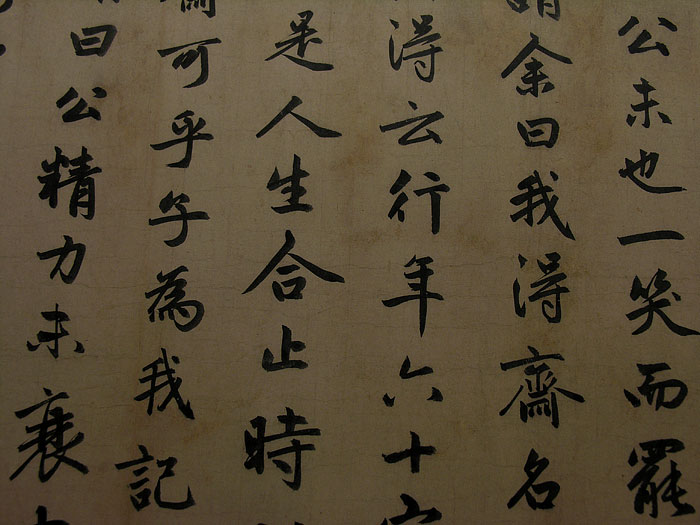 公未也一笑而罷
謂余曰我得齋名
得云行年六十
是人生合止時
可乎子為我記
曰公精力未衰